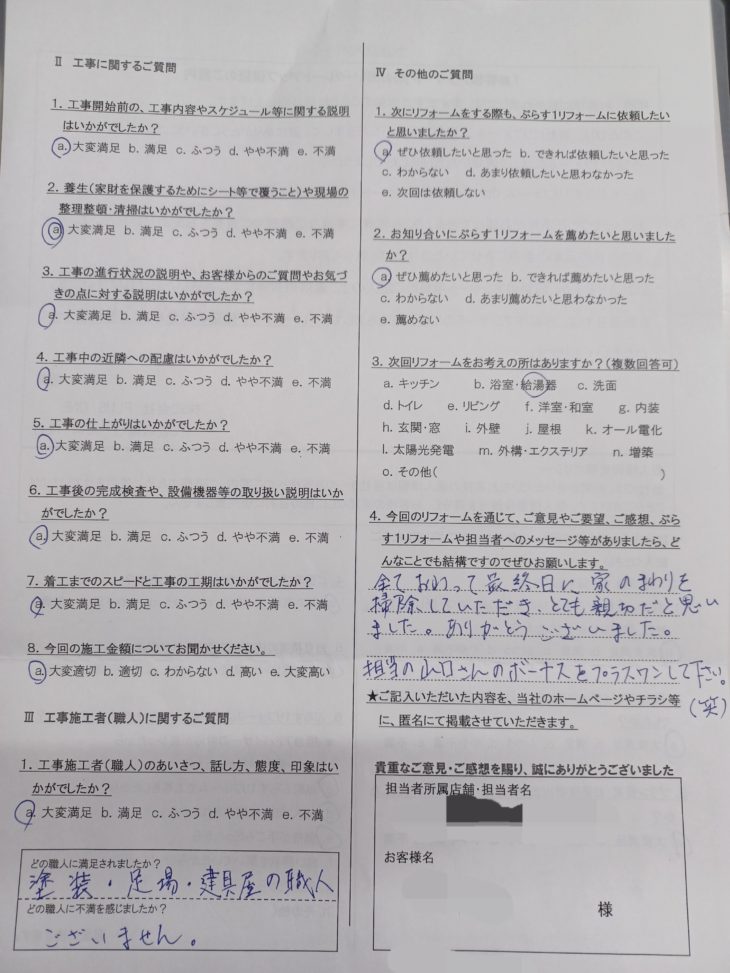 Ⅱ 工事に関するご質問
1. 工事開始前の、工事内容やスケジュール等に関する説明
はいかがでしたか?
a. 大変満足 b. 満足 c. ふつう d. やや不満 e. 不満
2. 養生(家財を保護するためにシート等で覆うこと)や現場の
整理整頓・清掃はいかがでしたか?
a. 大変満足 b. 満足 c. ふつう d. やや不満 e. 不満
3. 工事の進行状況の説明や、お客様からのご質問やお気づ
きの点に対する説明はいかがでしたか?
a. 大変満足 b. 満足 c. ふつう d. やや不満 e. 不満
4. 工事中の近隣への配慮はいかがでしたか?
a. 大変満足 b. 満足 c. ふつう d. やや不満 e. 不満
5. 工事の仕上がりはいかがでしたか?
a. 大変満足 b. 満足 c. ふつう d. やや不満 e. 不満
6. 工事後の完成検査や、設備機器等の取り扱い説明はいか
がでしたか?
a. 大変満足 b. 満足 c. ふつう d. やや不満 e. 不満
7. 着工までのスピードと工事の工期はいかがでしたか?
a. 大変満足 b. 満足 c. ふつう d. やや不満 e. 不満
8. 今回の施工金額についてお聞かせください。
a. 大変適切 b. 適切 c. わからない d. 高い e. 大変高い
Ⅲ 工事施工者(職人)に関するご質問
1. 工事施工者(職人)のあいさつ、話し方、態度、印象はい
かがでしたか?
a. 大変満足 b. 満足 c. ふつう d. やや不満 e. 不満
どの職人に満足されましたか?
塗装・足場・建具屋の職人
どの職人に不満を感じましたか?
ございません。
Ⅳ その他のご質問
1. 次にリフォームをする際も、ぷらす1リフォームに依頼したい
と思いましたか?
a. ぜひ依頼したいと思った b. できれば依頼したいと思った
c. わからない d. あまり依頼したいと思わなかった
e. 次回は依頼しない
2. お知り合いにぷらす1リフォームを薦めたいと思いました
か?
a. ぜひ薦めたいと思った b. できれば薦めたいと思った
c. わからない d. あまり薦めたいと思わなかった
e. 薦めない
3. 次回リフォームをお考えの所はありますか?(複数回答可)
a. キッチン b. 浴室・給湯器 c. 洗面
d. トイレ e. リビング f. 洋室・和室 g. 内装
h. 玄関・窓 i. 外壁 j. 屋根 k. オール電化
l. 太陽光発電 m. 外構・エクステリア n. 増築
o. その他( )
4. 今回のリフォームを通じて、ご意見やご要望、ご感想、ぷら
す1リフォームや担当者へのメッセージ等がありましたら、ど
んなことでも結構ですのでぜひお願いします。
全ておわって最終日に家のまわりを
掃除していただき、とても親切だと思い
ました。ありがとうございました。
担当の山口さんのボーナスをプラスワンして下さい。
(笑)
★ご記入いただいた内容を、当社のホームページやチラシ等
に、匿名にて掲載させていただきます。
貴重なご意見・ご感想を賜り、誠にありがとうございました
担当者所属店舗・担当者名
お客様名
様